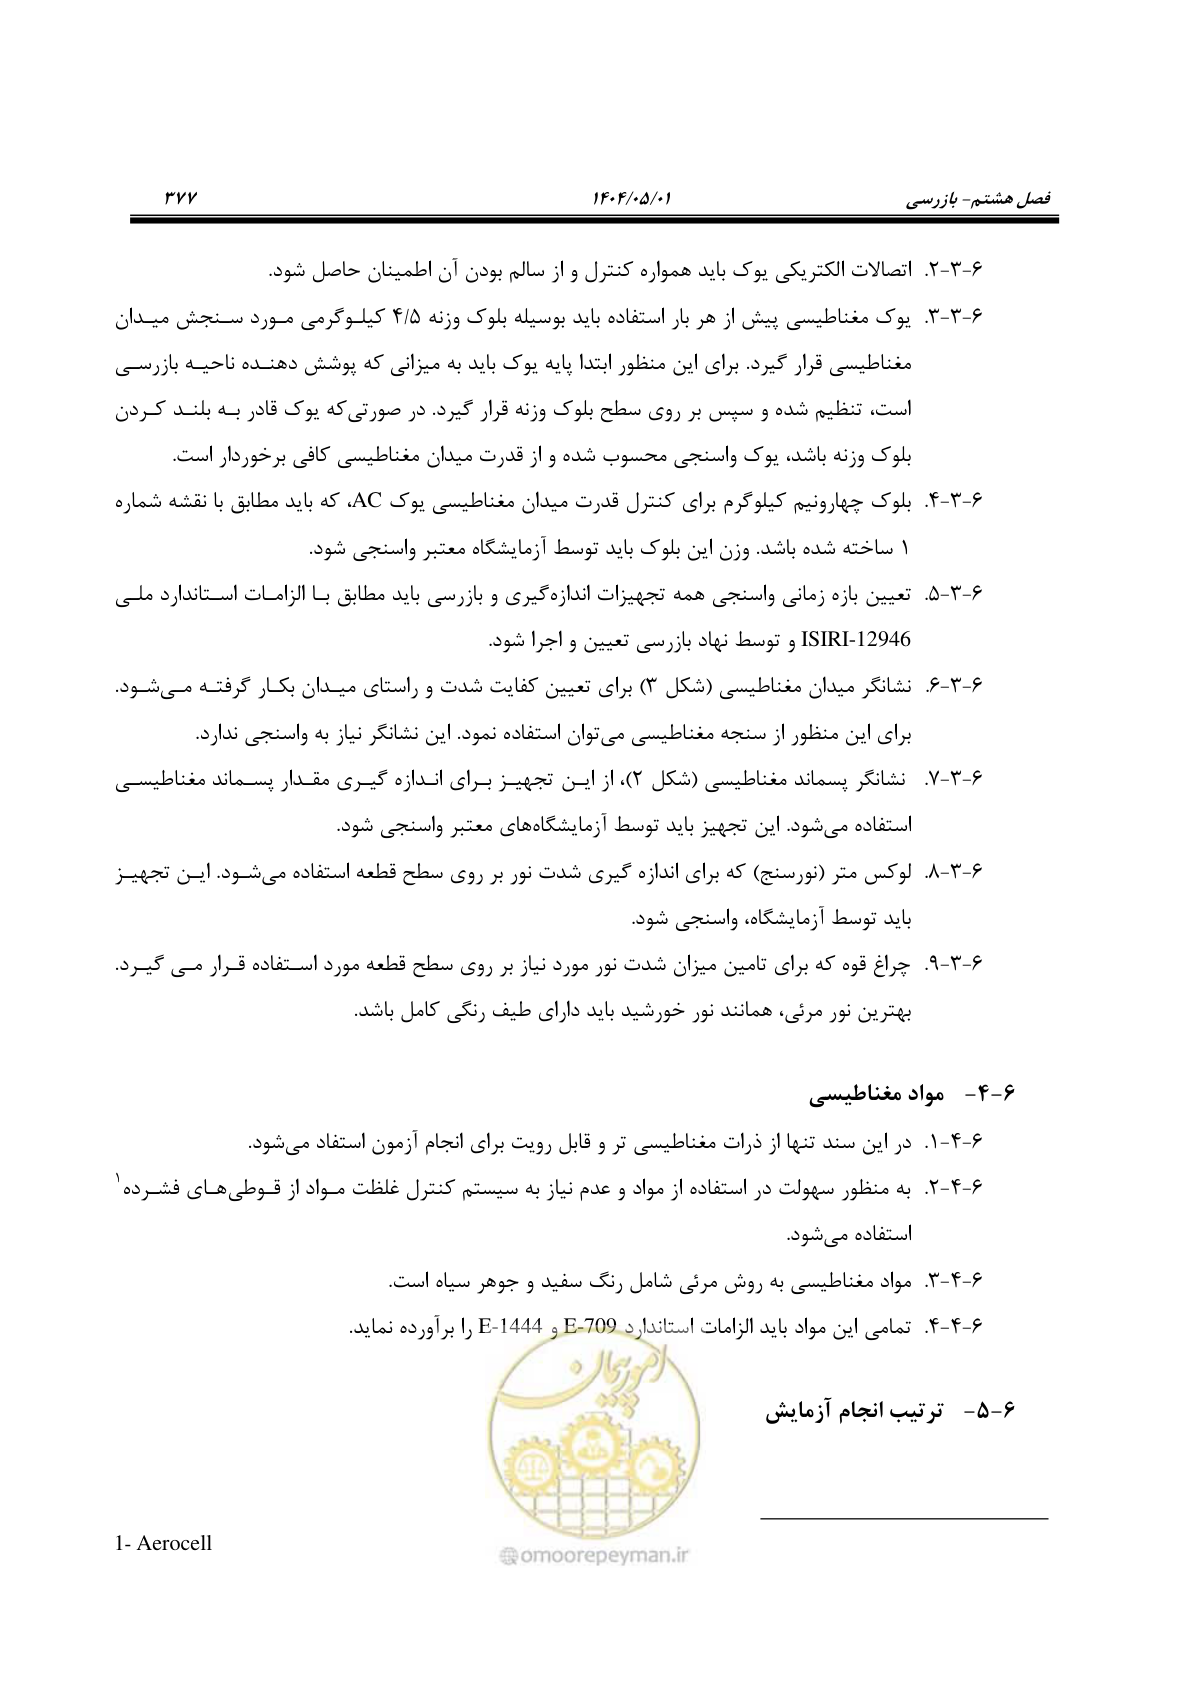 فصل هشتم- بازرسی ۱۴۰۴/۰۵/۰۱ ۳۷۷
۶-۳-۲. اتصالات الکتریکی یوک باید همواره کنترل و از سالم بودن آن اطمینان حاصل شود.
۶-۳-۳. یوک مغناطیسی پیش از هر بار استفاده باید بوسیله بلوک وزنه ۴/۵ کیلوگرمی مورد سنجش میدان
مغناطیسی قرار گیرد. برای این منظور ابتدا پایه یوک باید به میزانی که پوشش دهنده ناحیه بازرسی
است، تنظیم شده و سپس بر روی سطح بلوک وزنه قرار گیرد. در صورتی‌که یوک قادر به بلند کردن
بلوک وزنه باشد، یوک واسنجی محسوب شده و از قدرت میدان مغناطیسی کافی برخوردار است.
۶-۳-۴. بلوک چهارونیم کیلوگرم برای کنترل قدرت میدان مغناطیسی یوک AC، که باید مطابق با نقشه شماره
۱ ساخته شده باشد. وزن این بلوک باید توسط آزمایشگاه معتبر واسنجی شود.
۶-۳-۵. تعیین بازه زمانی واسنجی همه تجهیزات اندازه‌گیری و بازرسی باید مطابق با الزامات استاندارد ملی
ISIRI-12946 و توسط نهاد بازرسی تعیین و اجرا شود.
۶-۳-۶. نشانگر میدان مغناطیسی (شکل ۳) برای تعیین کفایت شدت و راستای میدان بکار گرفته می‌شود.
برای این منظور از سنجه مغناطیسی می‌توان استفاده نمود. این نشانگر نیاز به واسنجی ندارد.
۶-۳-۷. نشانگر پسماند مغناطیسی (شکل ۲)، از این تجهیز برای اندازه گیری مقدار پسماند مغناطیسی
استفاده می‌شود. این تجهیز باید توسط آزمایشگاه‌های معتبر واسنجی شود.
۶-۳-۸. لوکس متر (نورسنج) که برای اندازه گیری شدت نور بر روی سطح قطعه استفاده می‌شود. این تجهیز
باید توسط آزمایشگاه، واسنجی شود.
۶-۳-۹. چراغ قوه که برای تامین میزان شدت نور مورد نیاز بر روی سطح قطعه مورد استفاده قرار می گیرد.
بهترین نور مرئی، همانند نور خورشید باید دارای طیف رنگی کامل باشد.
۶-۴- مواد مغناطیسی
۶-۴-۱. در این سند تنها از ذرات مغناطیسی تر و قابل رویت برای انجام آزمون استفاد می‌شود.
۶-۴-۲. به منظور سهولت در استفاده از مواد و عدم نیاز به سیستم کنترل غلظت مواد از قوطی‌های فشرده۱
استفاده می‌شود.
۶-۴-۳. مواد مغناطیسی به روش مرئی شامل رنگ سفید و جوهر سیاه است.
۶-۴-۴. تمامی این مواد باید الزامات استاندارد E-709 و E-1444 را برآورده نماید.
امور پیمان
۶-۵- ترتیب انجام آزمایش
1- Aerocell
@omoorepeyman.ir